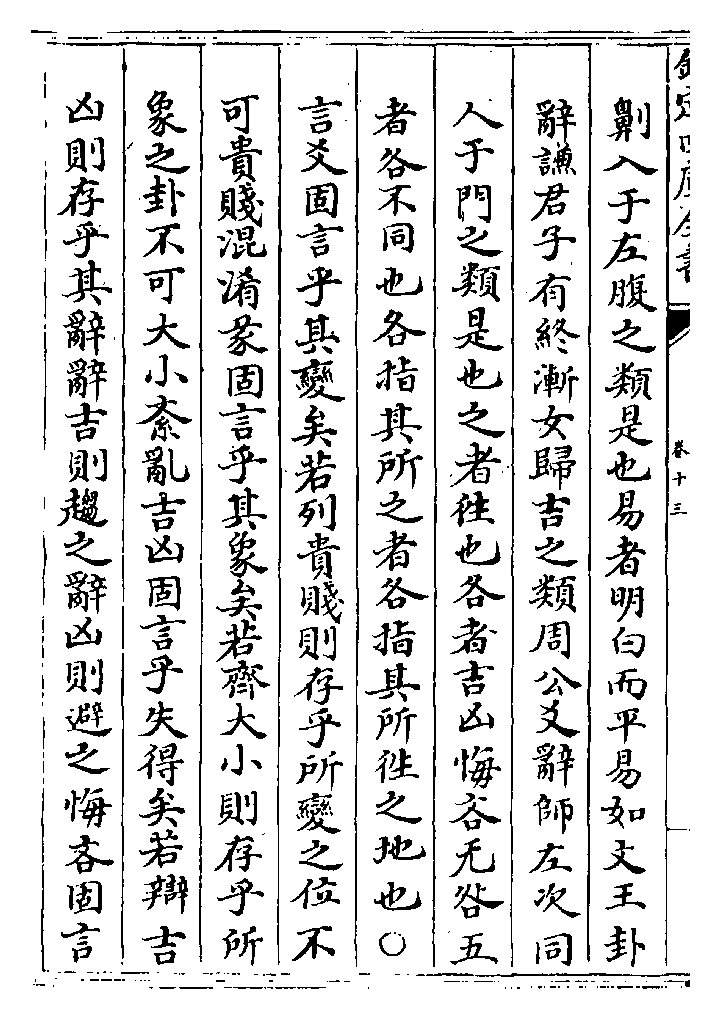 欽定四庫全書
卷十三
劓入于左腹之類是也易者明白而平易如文王卦
辭謙君子有終漸女歸吉之類周公爻辭師左次同
人于門之類是也之者徃也各者吉凶悔吝无咎五
者各不同也各指其所之者各指其所徃之地也〇
言爻固言乎其變矣若列貴賤則存乎所變之位不
可貴賤混淆彖固言乎其象矣若齊大小則存乎所
象之卦不可大小紊亂吉凶固言乎失得矣若辯吉
凶則存乎其辭辭吉則趨之辭凶則避之悔吝固言